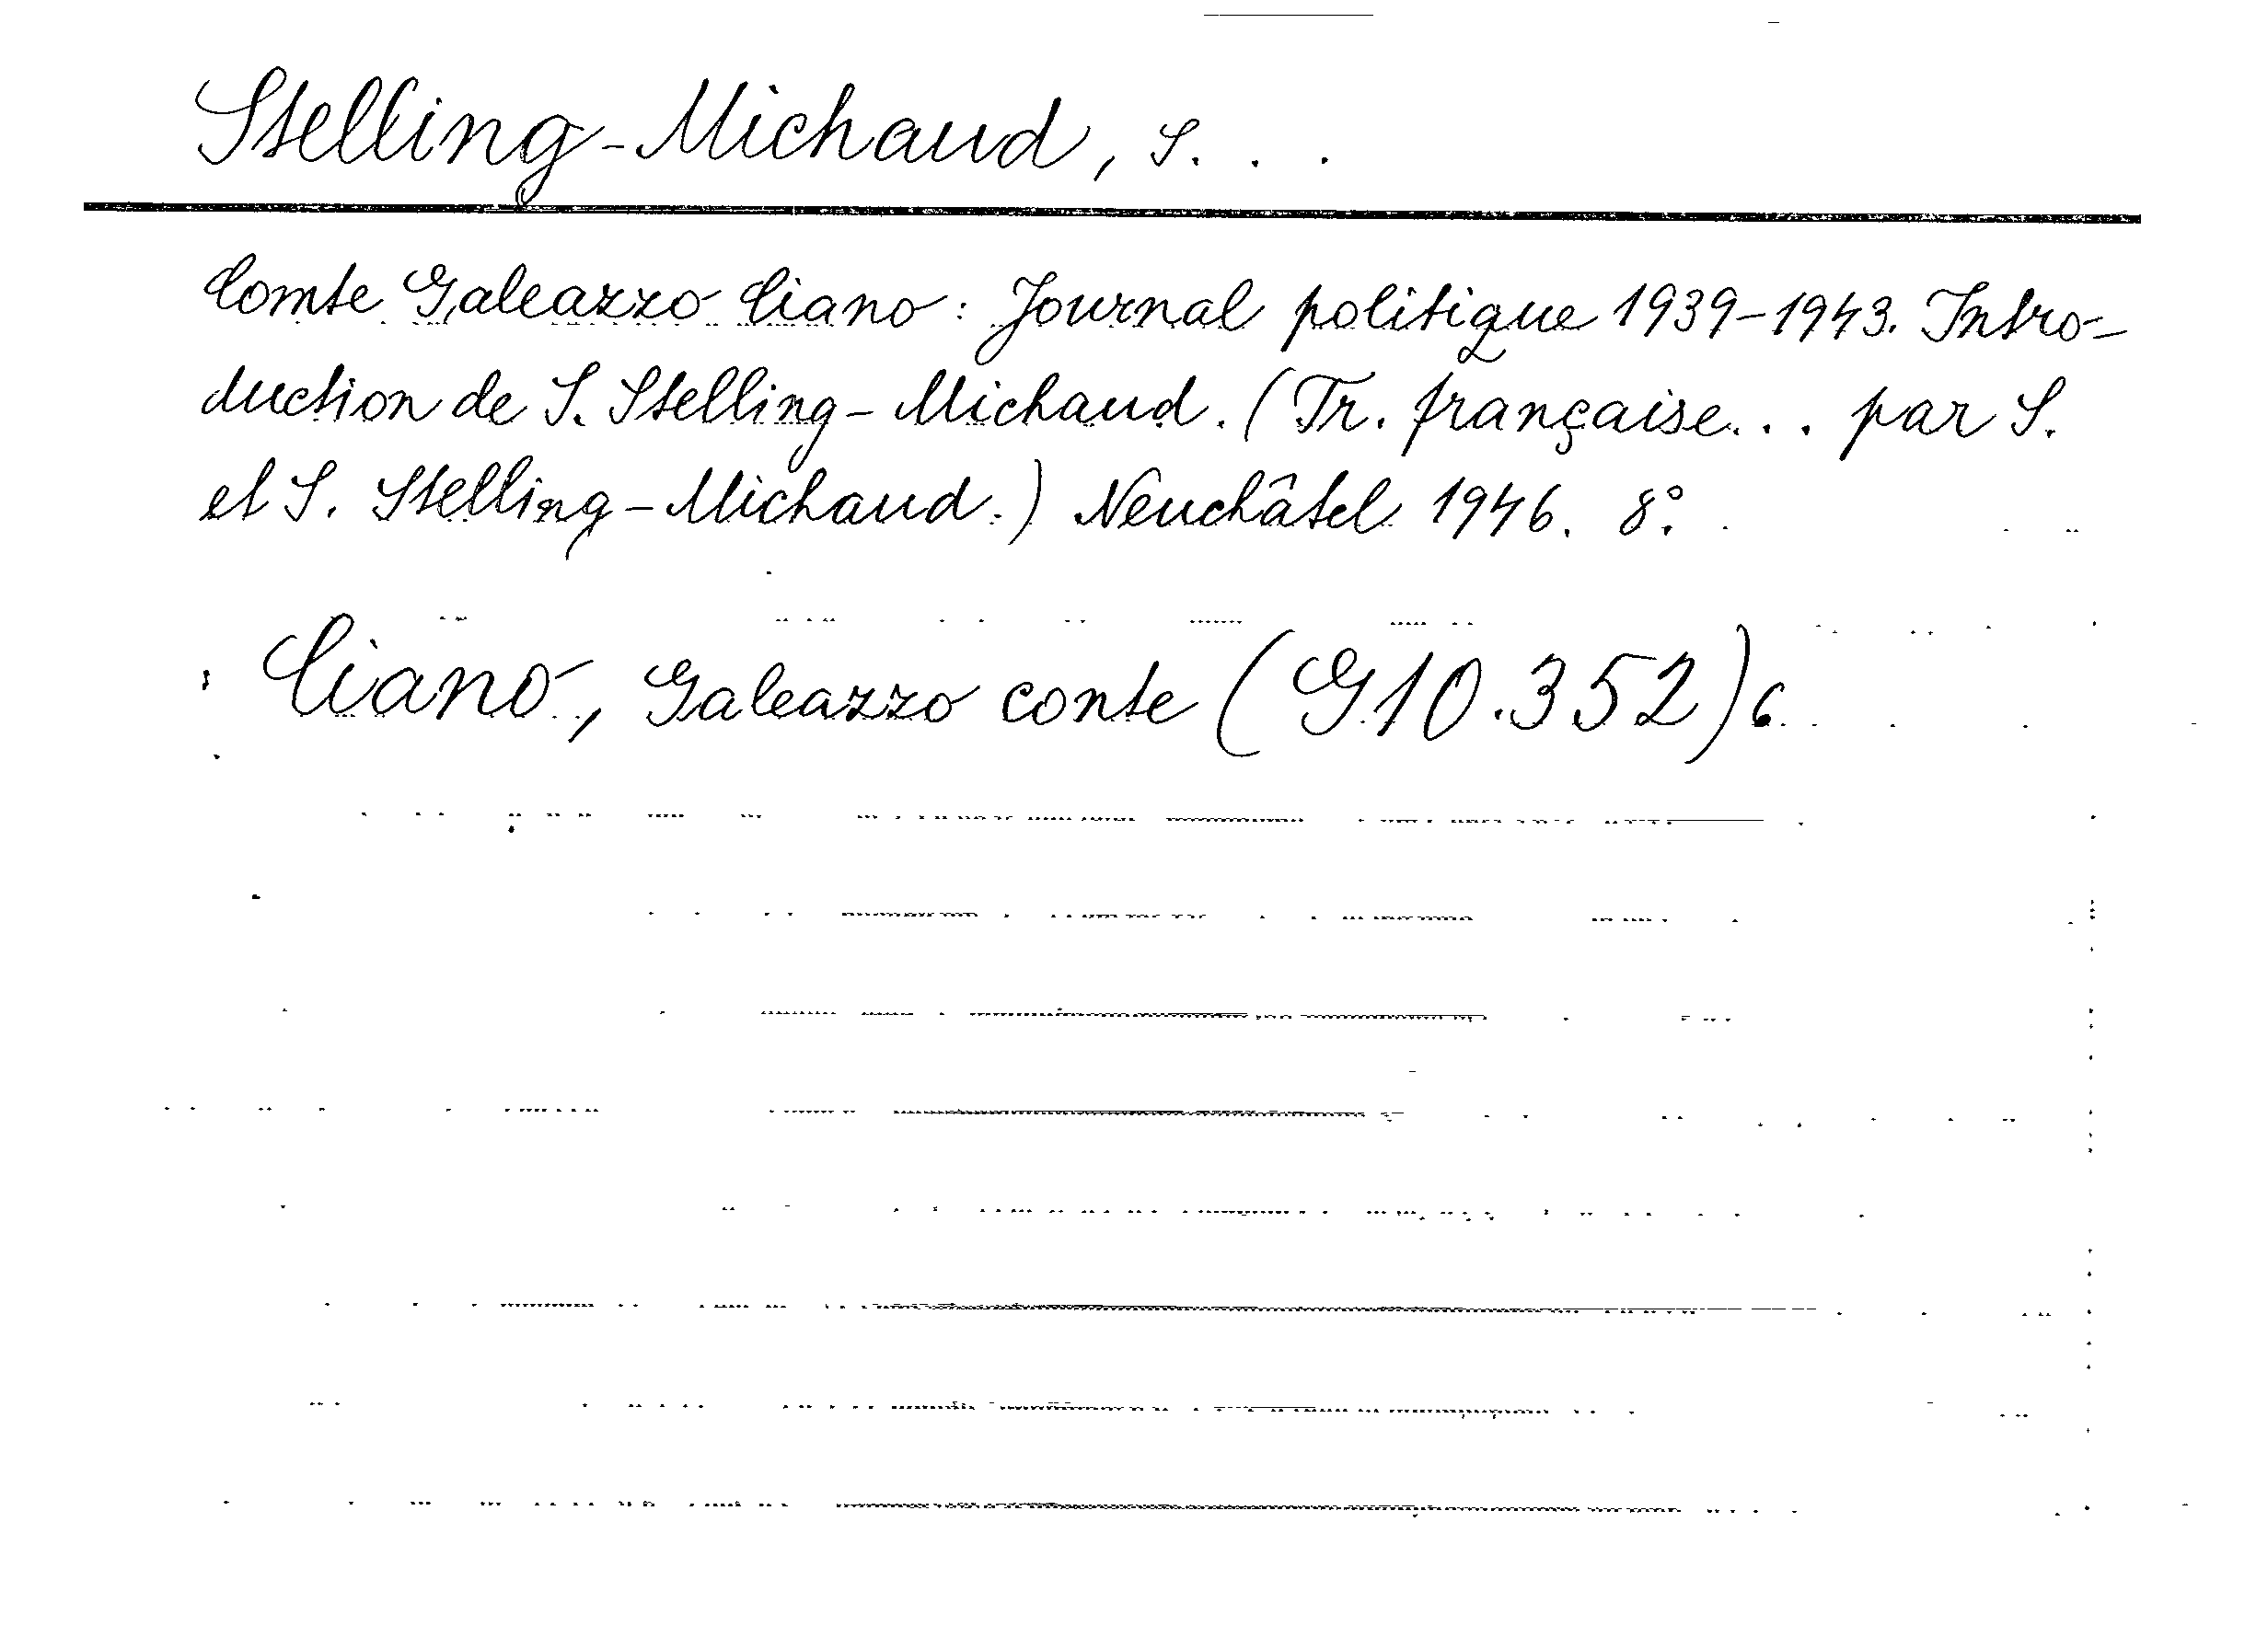 Stelling-Michaud, S. . .
Comte Galeazzo Ciano: Journal politique 1939-1943. Intro-
duction de S. Stelling-Michaud. (Tr. française... par S.
et S. Stelling-Michaud.) Neuchâtel 1946. 8°.
Ciano, Galeazzo conte (G 10.352) 6.